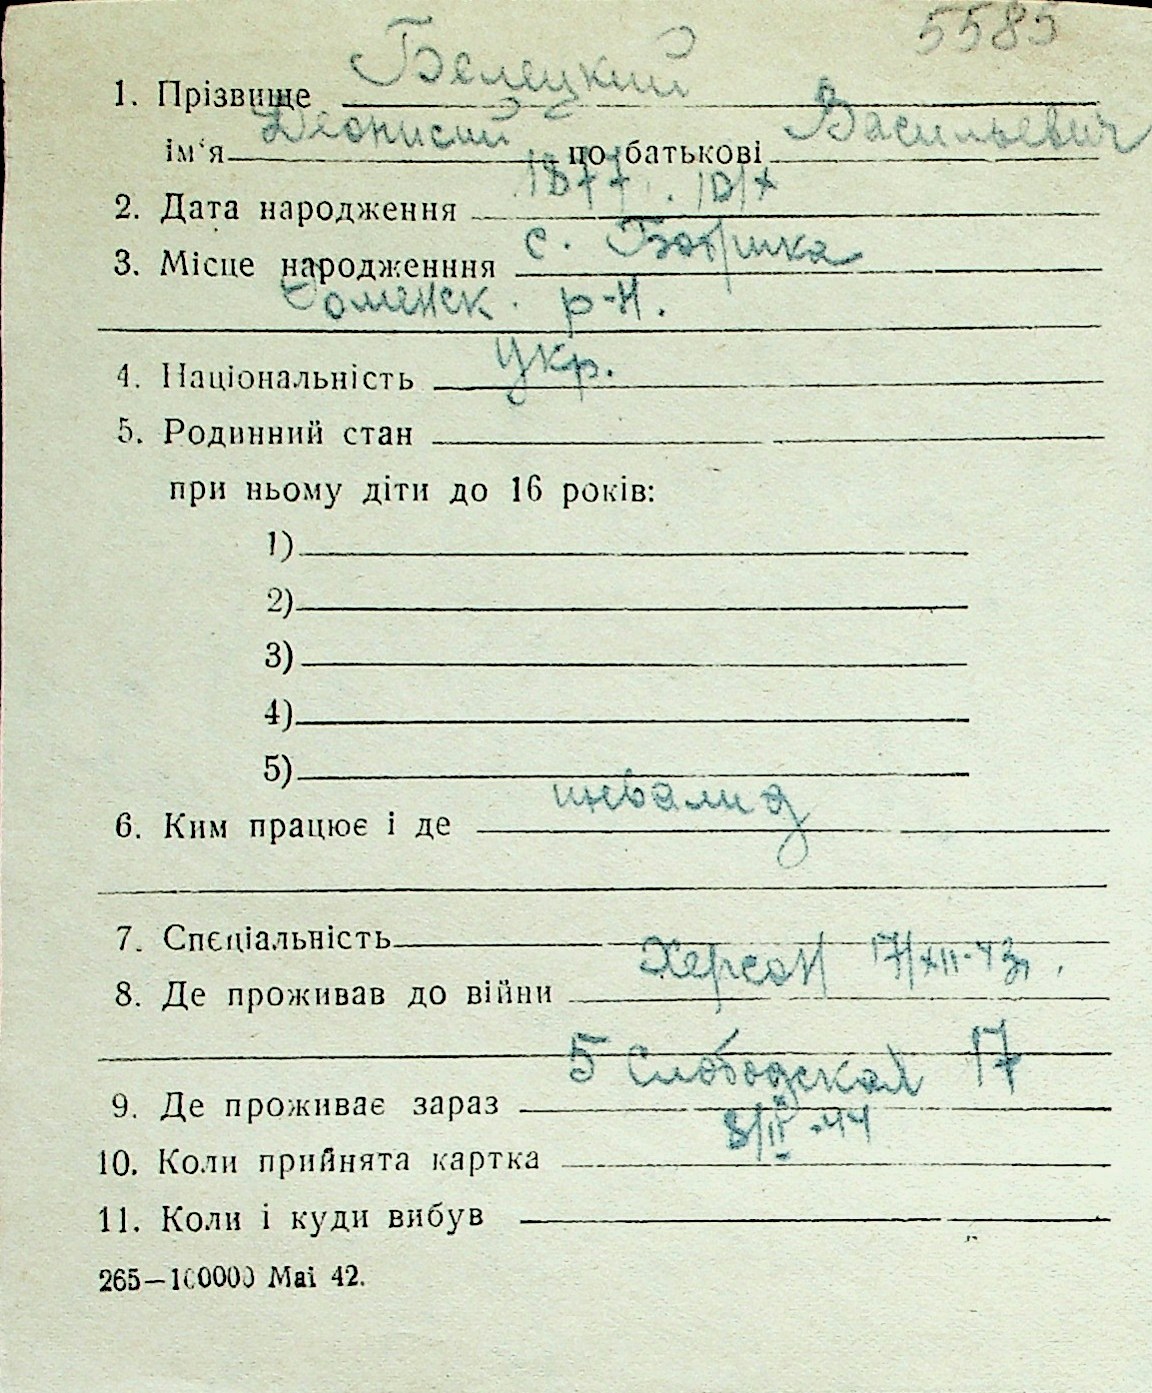 5585
1. Прізвище Белецкий
ім'я Деонисий по батькові Васильевич
2. Дата народження 1877. 10/X
3. Місце народженння с. Бобрика
Роменск. р-н.
4. Національність Укр.
5. Родинний стан
при ньому діти до 16 років:
1)
2)
3)
4)
5)
6. Ким працює і де инвалид
7. Спеціальність
8. Де проживав до війни Херсон 17/XII-43г.
9. Де проживає зараз 5 Слободская 17
10. Коли прийнята картка 8/II-44
11. Коли і куди вибув
265—100000 Mai 42.